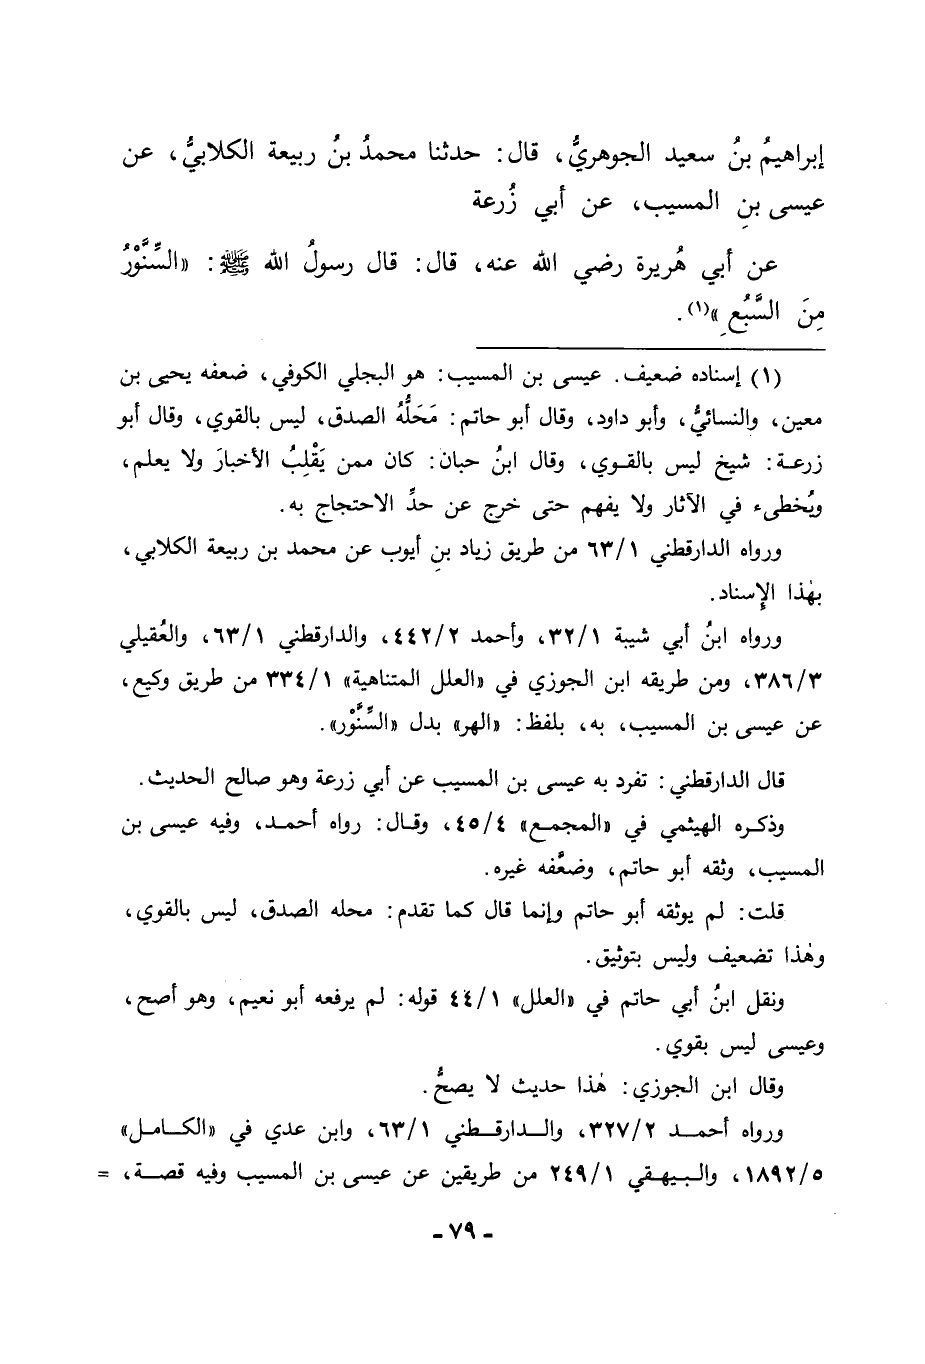 إبراهيمُ بنُ سعيد الجوهريُّ، قال: حدثنا محمدُ بنُ ربيعة الكلابيُّ، عن
عيسى بنِ المسيب، عن أبي زُرعة
عن أبي هُريرة رضي الله عنه، قال: قال رسولُ الله ﷺ: «السِّنَّوْرُ
مِنَ السَّبُعِ»(١).
(١) إسناده ضعيف. عيسى بن المسيب: هو البجلي الكوفي، ضعفه يحيى بن
معين، والنسائيُّ، وأبو داود، وقال أبو حاتم: مَحَلُّهُ الصدق، ليس بالقوي، وقال أبو
زرعة: شيخ ليس بالقوي، وقال ابنُ حبان: كان ممن يَقْلِبُ الأخبارَ ولا يعلم،
ويُخطىء في الآثار ولا يفهم حتى خرج عن حدِّ الاحتجاج به.
ورواه الدارقطني ٦٣/١ من طريق زياد بنِ أيوب عن محمد بن ربيعة الكلابي،
بهٰذا الإِسناد.
ورواه ابنُ أبي شيبة ٣٢/١، وأحمد ٤٤٢/٢، والدارقطني ٦٣/١، والعُقيلي
٣٨٦/٣، ومن طريقه ابن الجوزي في «العلل المتناهية» ٣٣٤/١ من طريق وكيع،
عن عيسى بن المسيب، به، بلفظ: «الهر» بدل «السِّنَّوْر».
قال الدارقطني: تفرد به عيسى بن المسيب عن أبي زرعة وهو صالح الحديث.
وذكره الهيثمي في «المجمع» ٤٥/٤، وقال: رواه أحمد، وفيه عيسى بن
المسيب، وثقه أبو حاتم، وضعَّفه غيره.
قلت: لم يوثقه أبو حاتم وإنما قال كما تقدم: محله الصدق، ليس بالقوي،
وهٰذا تضعيف وليس بتوثيق.
ونقل ابنُ أبي حاتم في «العلل» ٤٤/١ قوله: لم يرفعه أبو نعيم، وهو أصح،
وعيسى ليس بقوي.
وقال ابن الجوزي: هٰذا حديث لا يصحُّ.
ورواه أحمد ٣٢٧/٢، والدارقطني ٦٣/١، وابن عدي في «الكامل»
١٨٩٢/٥، والبيهقي ٢٤٩/١ من طريقين عن عيسى بن المسيب وفيه قصة، =
- ٧٩ -